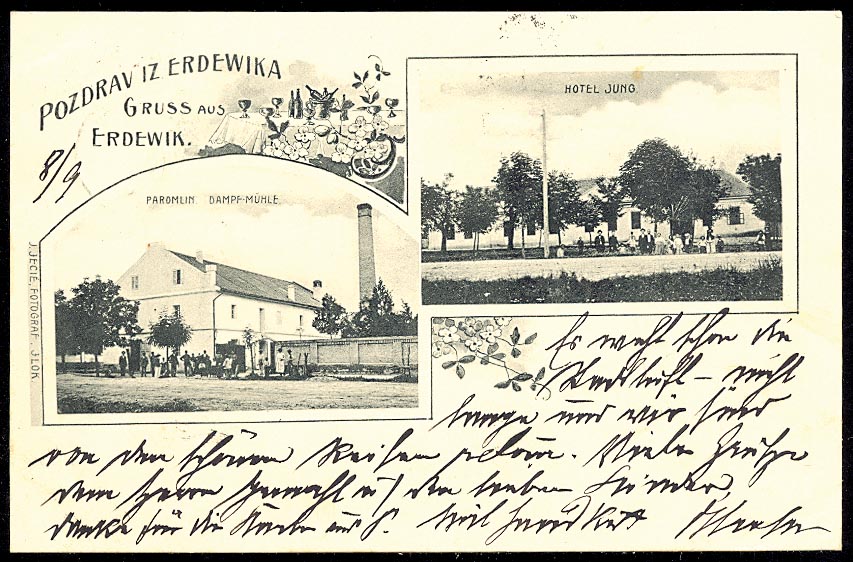 POZDRAV IZ ERDEWIKA
GRUSS AUS
ERDEWIK.
8/9
HOTEL JUNG
PAROMLIN. DAMPF-MÜHLE
J. JECIĆ, FOTOGRAF, JLOK
Es weht schon die
Stadtluft – nicht
lange und wir sind
von den schönen Reisen retour. Viele Grüße
dem Herrn Gemahl u. den lieben Kinder
danke für die Karte aus